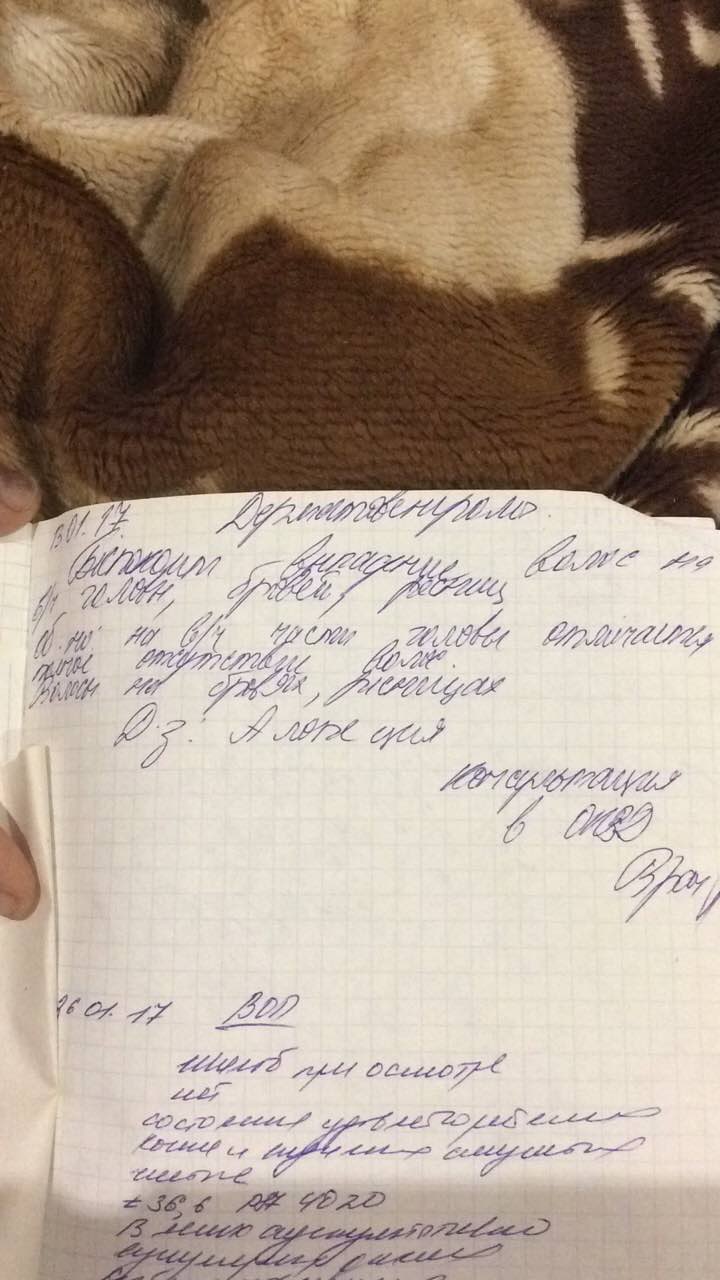 13.01.17. Дерматовенеролог.
выпадение волос на
в/ч головы, бровей, ресниц
Об-но: на в/ч части головы отмечается
отсутствие волос
Волосы на бровях, ресницах
Д-з: Алопеция
консультация
в ОКВД
Врач
26 01. 17 ВОП
жалоб при осмотре
нет
состояние удовлетворительное
кожа и слизистые
чистые
t 36,6
В легких аускультативно